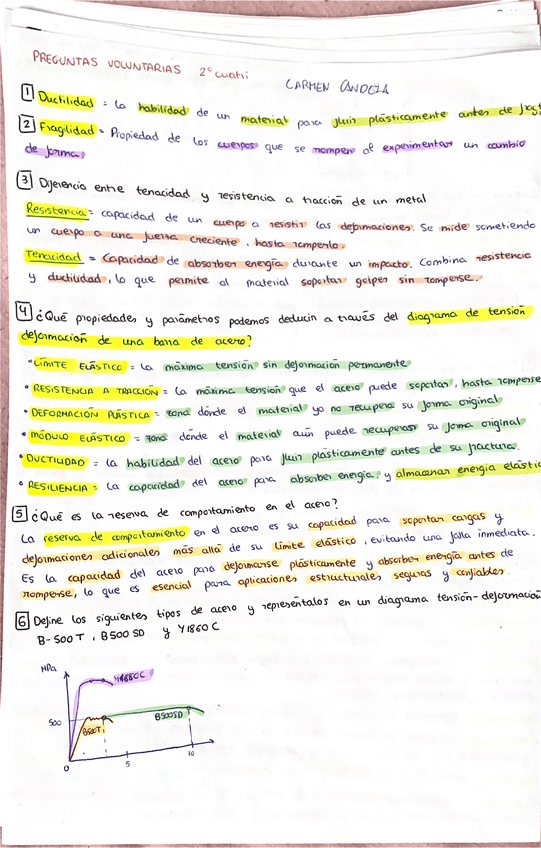 PREGUNTAS VOLUNTARIAS 2º cuatri
CARMEN CANDELA
1 Ductilidad = La habilidad de un material para fluir plásticamente antes de
2 Fragilidad = Propiedad de los cuerpos que se rompen al experimentar un cambio
de forma.
3 Diferencia entre tenacidad y resistencia a tracción de un metal
Resistencia = capacidad de un cuerpo a resistir las deformaciones. Se mide sometiendo
un cuerpo a una fuerza creciente, hasta romperlo.
Tenacidad = Capacidad de absorber energía durante un impacto. Combina resistencia
y ductilidad, lo que permite al material soportar golpes sin romperse.
4 ¿Qué propiedades y parámetros podemos deducir a través del diagrama de tensión
deformación de una barra de acero?
• LÍMITE ELÁSTICO = La máxima tensión sin deformación permanente
• RESISTENCIA A TRACCIÓN = La máxima tensión que el acero puede soportar, hasta romperse
• DEFORMACIÓN PLÁSTICA = zona dónde el material ya no recupera su forma original
• MÓDULO ELÁSTICO = zona dónde el material aún puede recuperar su forma original
• DUCTILIDAD = La habilidad del acero para fluir plásticamente antes de su fractura.
• RESILIENCIA = La capacidad del acero para absorber energía y almacenar energía elástic
5 ¿Qué es la reserva de comportamiento en el acero?
La reserva de comportamiento en el acero es su capacidad para soportar cargas y
deformaciones adicionales más allá de su límite elástico, evitando una falla inmediata.
Es la capacidad del acero para deformarse plásticamente y absorber energía antes de
romperse, lo que es esencial para aplicaciones estructurales seguras y confiables.
6 Define los siguientes tipos de acero y represéntalos en un diagrama tensión-deformación
B-500T, B500SD y Y1860C
MPa
Y1860C
500
B500T
B500SD
0
5
10